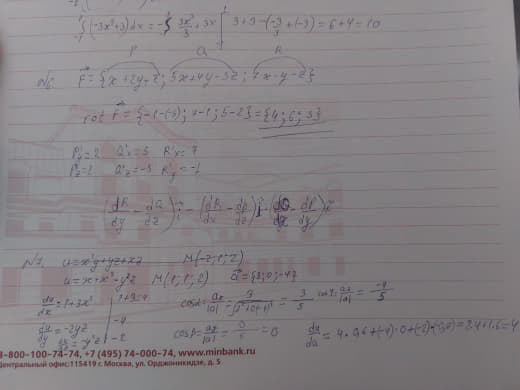 ∫(-3x²+3)dx = - 3x³/3 + 3x | 3+3-(-3/3+(-3)) = 6+4 = 10
P Q R
N6. F = {x+2y+z; 5x+4y-3z; 7x-y-z}
rot F = {-1-(-3); 1-7; 5-2} = {4; 6; 3}
P'y = 2 Q'x = 5 R'x = 7
P'z = 1 Q'z = -3 R'y = -1
(dR/dy - dQ/dz) i - (dR/dx - dP/dz) j - (dQ/dx - dP/dy)
N7. u = x²y+yz+xz M(-2; 1; 2)
u = x+x³-y²z M(1; 1; 2) a = {3; 0; -4}
du/dx = 1+3x² | 1+3=4 cosα = ax/|a| = 3/5 cosγ = az/|a| = -4/5
du/dy = -2yz | -4 cosβ = ay/|a| = 0/5 = 0
du/dz = -y²
du/da = 4·0,6+(-4)·0+ = 2,4+1,6 = 4
8-800-100-74-74, +7 (495) 74-000-74, www.minbank.ru
Центральный офис: 115419 г. Москва, ул. Орджоникидзе, д. 5